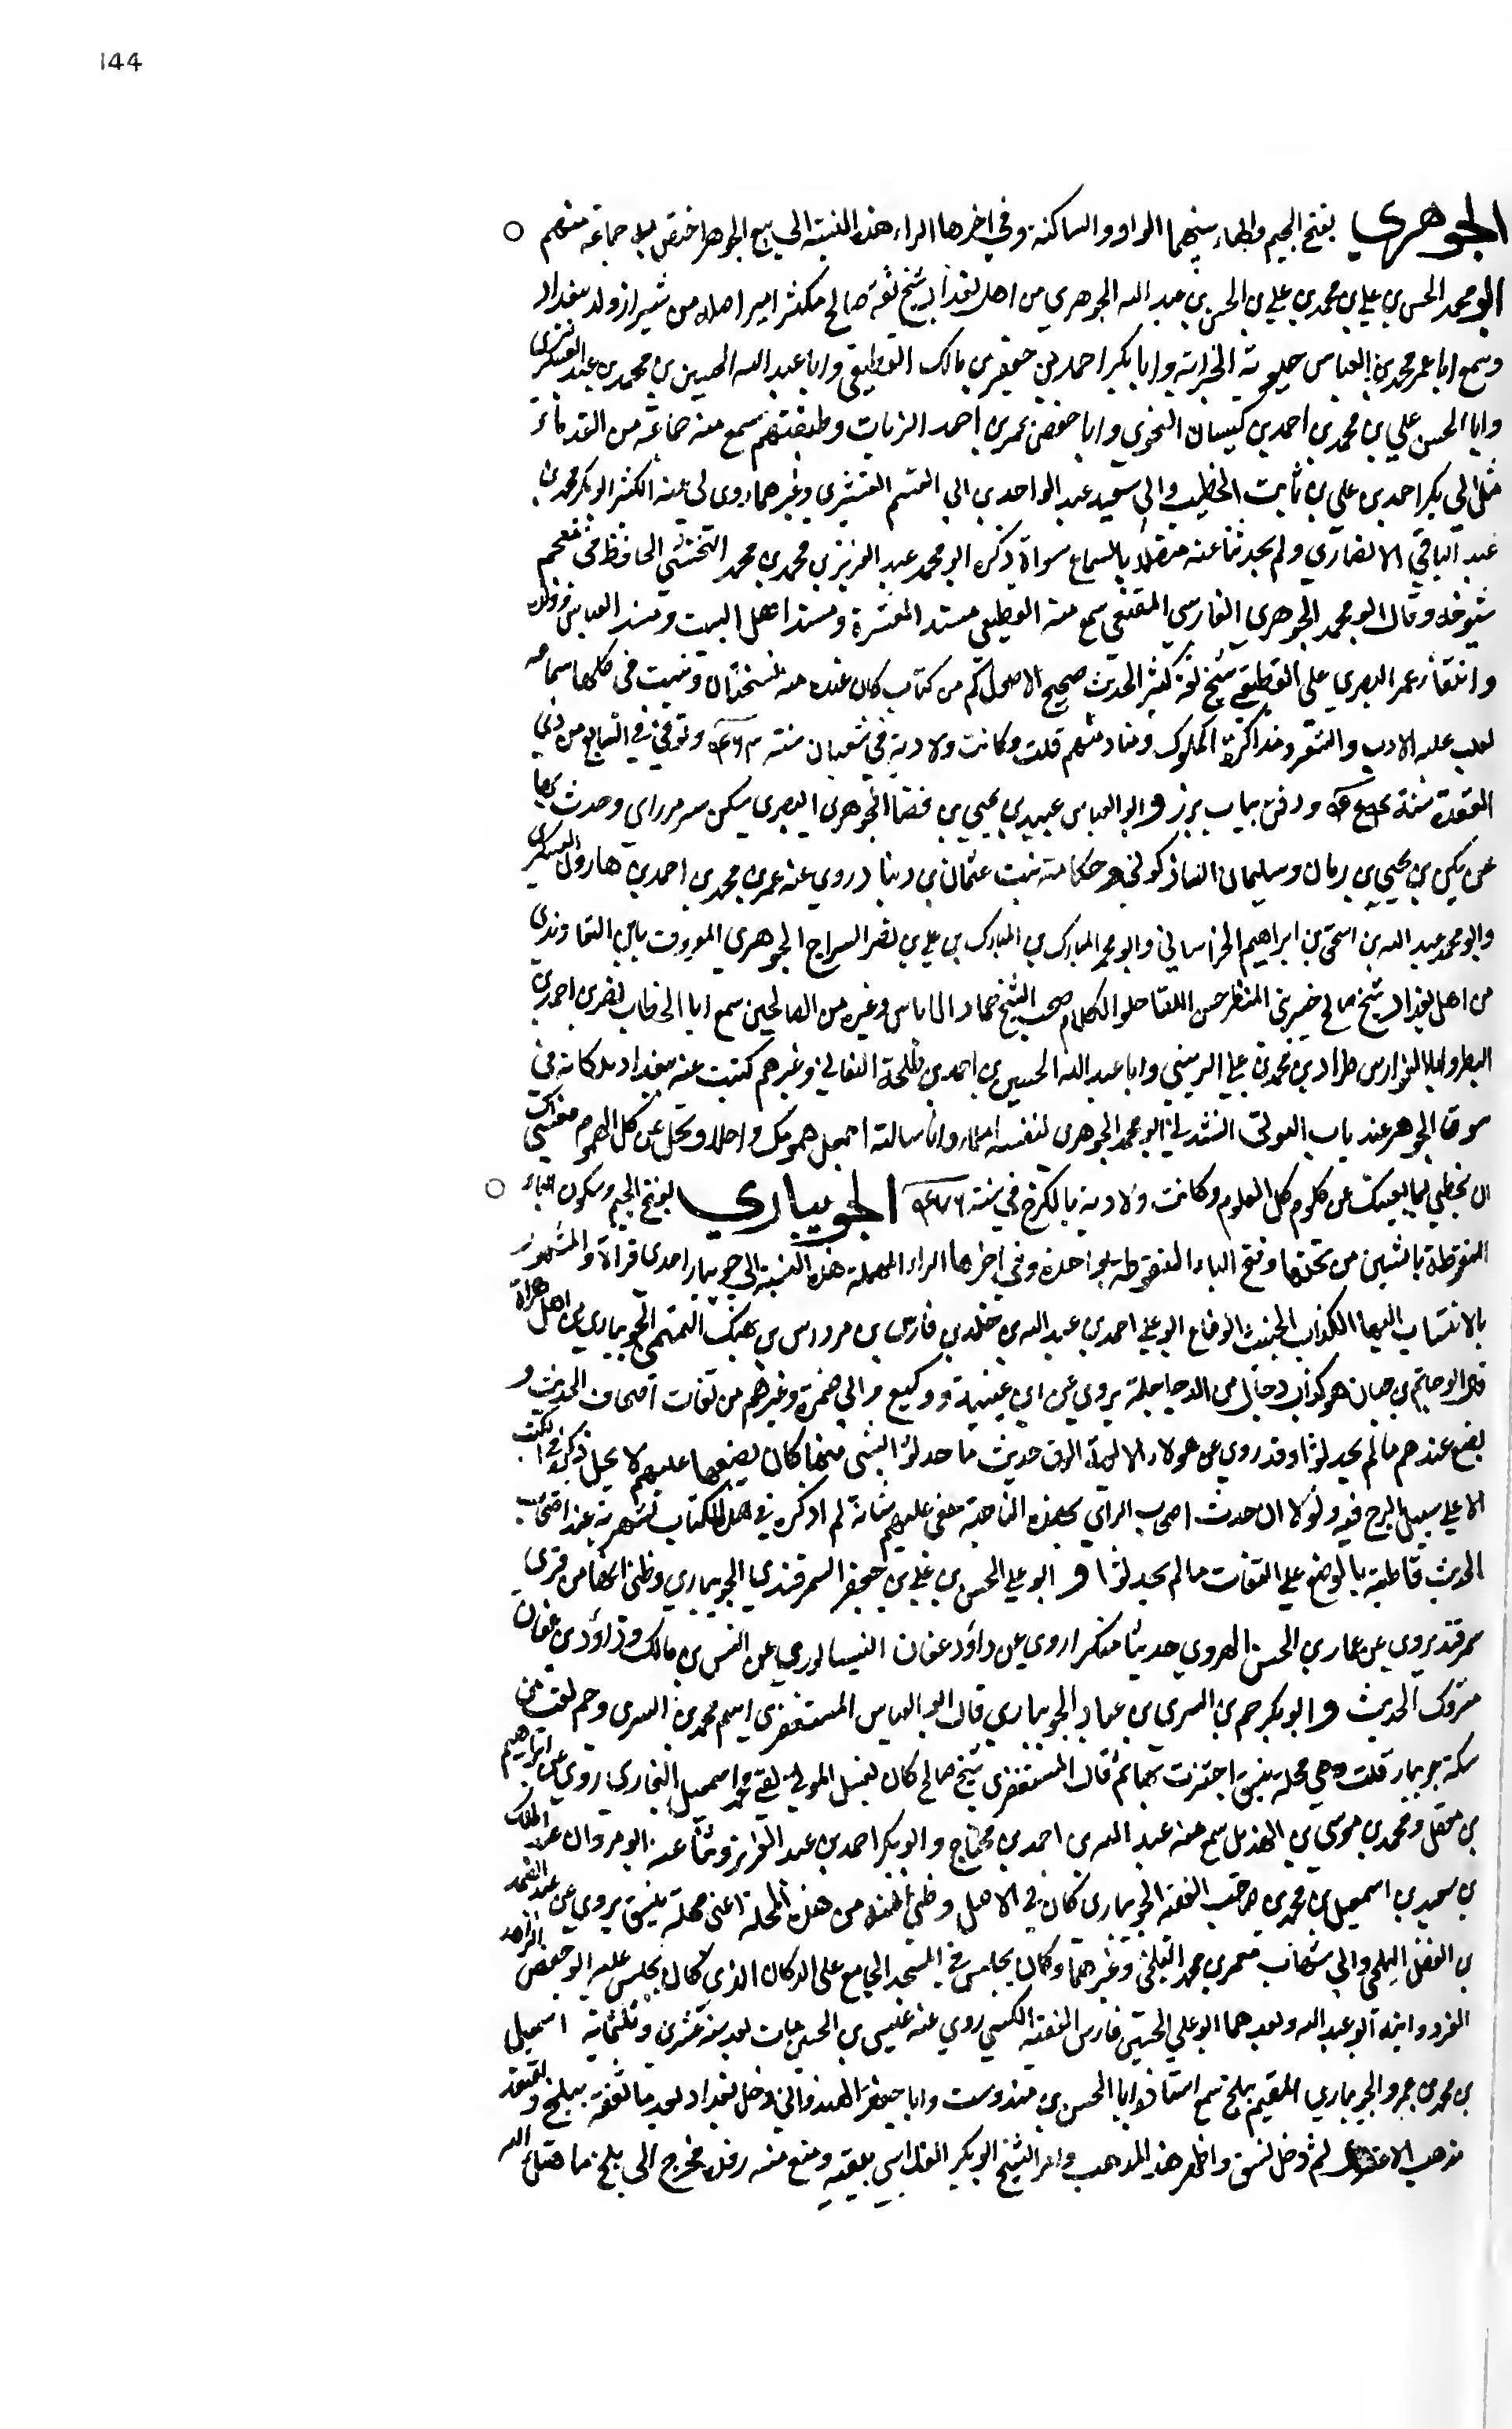 144
الجوهري بفتح الجيم والهاء بينهما الواو والساكنة وفي اخرها الراء هذه النسبة الي بيع الجوهر اختص به جماعة منهم
ابو محمد الحسن بن علي بن محمد بن علي بن الحسن بن عبد الله الجوهري من اهل بغداد شيخ ثقة صالح مكثر امير اصله من شيراز ولد ببغداد
وسمع ابا عمر محمد بن العباس حيويه الخزاز وابا بكر احمد بن جعفر بن مالك القطيعي وابا عبد الله الحسين بن محمد بن عبيد العسكري
وابا الحسن علي بن محمد بن احمد بن كيسان النحوي وابا حفص عمر بن احمد الزيات وطبقتهم سمع منه جماعة من القدماء
مثل ابي بكر احمد بن علي بن ثابت الخطيب وابي سعيد عبد الواحد بن ابي القسم القشيري وغيرهما روى لي عنه الكثير ابو بكر محمد بن
عبد الباقي الانصاري ولم يحدثنا عنه متصلا بالسماع سواه ذكره ابو محمد عبد العزيز بن محمد بن محمد النخشبي الحافظ في معجم
شيوخه وقال ابو محمد الجوهري الفارسي المقنعي سمع منه القطيعي مسند العشرة ومسند اهل البيت ومسند العباس
وانتقاء عمر البصري على القطيعي شيخ ثقة كثير الحديث صحيح الاصول كم من كتاب كان عنده منه نسختان وثبت في كلها سماعه
عليه الادب والشعر ومذاكرة الملوك ومنادمتهم قلت وكانت ولادته في شعبان سنة وتوفي في السابع من ذي
القعدة سنة ودفن بباب برز وابو العباس عبيد بن يحيى بن الجوهري البصري سكن سر من راي وحدث بها
عن بكير بن يحيي بن ربان وسليمان الشاذكوني وحكامة بنت عثمان بن دينار روي عنه عمر بن محمد بن احمد بن هارون العسكري
وابو محمد عبد الله بن اسحق بن ابراهيم الخراساني وابو محمد المبارك بن المبارك بن علي بن نصر السراج الجوهري المعروف بابن التعاويذي
من اهل بغداد شيخ صالح المنظر حسن اللقا حلو الكلام صحب الشيخ حماد الدباس وغيره من الصالحين سمع ابا الخطاب نصر بن احمد بن
البطر وابا الفوارس طراد بن محمد بن علي الزينبي وابا عبد الله الحسين بن احمد بن طلحة النعالي وغيرهم كتبت عنه ببغداد بدكانه في
سوق الجوهر عند باب النوبي انشدني ابو محمد الجوهري لنفسه املاء وانا سالته اجعل همومك واحدا وتخل عن كل الهموم فعساك
ان تحظى بما يغنيك عن كل العلوم وكانت ولادته بالكرخ في سنة الجويباري بفتح الجيم وسكون الياء
المنقوطة باثنتين من تحتها وفتح الباء المنقوطة بواحدة وفي اخرها الراء المهملة هذه النسبة الي جويبار احدى قراه والمشهور
بالانتساب اليها الكذاب الخبيث الوضاع ابو علي احمد بن عبد الله بن خلد بن فارس بن مرداس بن نهيك التميمي الجويباري من اهل هراة
قال ابو حاتم بن حبان هو كذاب دجال من الدجاجلة يروي عن ابن عيينة ووكيع وابي ضمرة وغيرهم من ثقات اصحاب الحديث و
يضع عندهم ما لم يحدثوا وقد روى عن هولاء الائمة الوف حديث ما حدثوا بشي منها كان يضعها عليهم لا يحل ذكره في الكتب
الا علي سبيل الجرح فيه ولولا ان حدث اصحاب الراي بهذه الناحية خفي عليهم شانه لم اذكره في هذا الكتاب لشهرته عند اصحاب
الحديث قاطبة بالوضع علي الثقات ما لم يحدثوا وابو علي الحسن بن علي بن جعفر السمرقندي الجويباري وظني انها من قرى
سمرقند يروي عن عمار بن الحسن الهروي حديثا منكرا روي عن داؤد عفان النيسابوري عن انس بن مالك وداؤد بن عفان
متروك الحديث وابو بكر حم بن السري بن عباد الجويباري قال ابو العباس المستغفري اسم محمد بن السري وحم لقب من
سكة جويبار قلت وهي محلة بنسف اجتزت بها قال المستغفري شيخ صالح كان يغسل الموتى لقي محمد اسمعيل البخاري روي عن ابراهيم
بن معقل ومحمد بن موسى بن الهذيل سمع منه عبد الله بن احمد بن محتاج وابو بكر احمد بن عبد العزيز وثنا عنه ابو مروان عبد الملك
بن سعيد بن اسمعيل بن محمد بن صاحب الفقه الجويباري كان في الاصل وظني انه من هذه المحلة اعني محلة بنسف يروي عن عبد الصمد
بن الفضل البلخي وابي شهاب معمر بن محمد البلخي وغيرهما وكان يجلس في المسجد الجامع على الدكان الذي كان يجلس عليه ابو حفص الزاهد
وابنه ابو عبد الله وبعدهما ابو علي الحسين فارس الفقيه الكسي روي عنه عيسى بن الحسين مات بعد سنة عشرين وثلثماية اسمعيل
بن محمد بن الجويباري المقيم ببلخ سمع استاذه ابا الحسن بن وابا جعفر الهندواني دخل بغداد بعد ما تفقه ببلخ واعتقد
مذهب الاعتزال ثم دخل نسف واظهر هذا المذهب وامر الشيخ ابو بكر ومنع منه فخرج الى بلخ